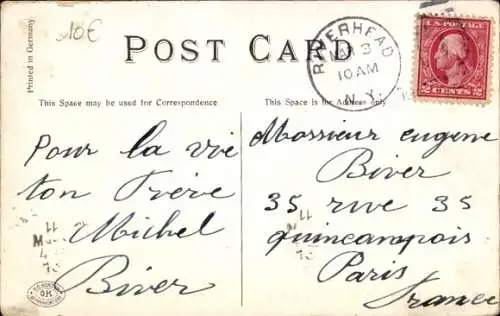 10€
Printed in Germany
POST CARD
This Space may be used for Correspondence
This Space is for Address only
RIVERHEAD
MAR 3
10 AM
N. Y.
U.S. POSTAGE
2 CENTS 2
Pour la vie
ton Frère
Michel
Biver
Monsieur eugene
Biver
35 rue 35
quincampois
Paris
France